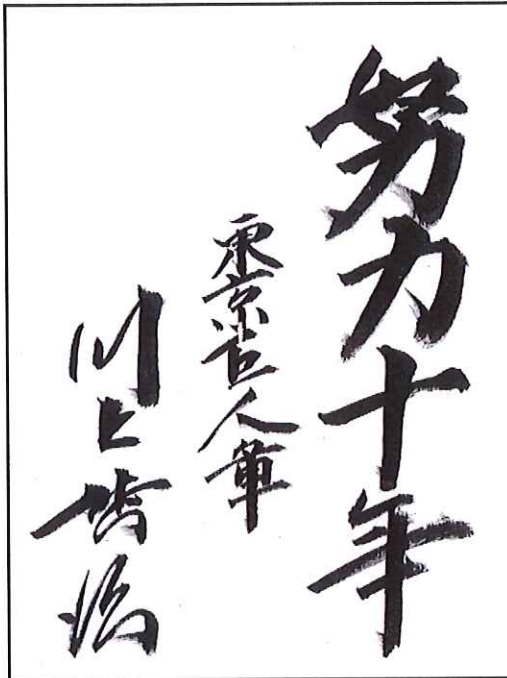 努力十年
東京巨人軍
川上哲治